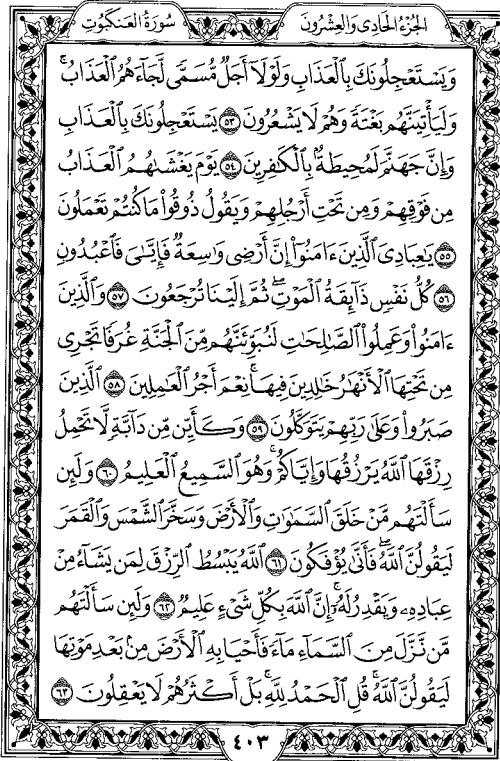 الجزء الحادى والعشرون
سورة العنكبوت
وَيَسْتَعْجِلُونَكَ بِالْعَذَابِ وَلَوْلَا أَجَلٌ مُّسَمًّى لَّجَاءَهُمُ الْعَذَابُ
وَلَيَأْتِيَنَّهُم بَغْتَةً وَهُمْ لَا يَشْعُرُونَ ٥٣ يَسْتَعْجِلُونَكَ بِالْعَذَابِ
وَإِنَّ جَهَنَّمَ لَمُحِيطَةٌ بِالْكَٰفِرِينَ ٥٤ يَوْمَ يَغْشَىٰهُمُ الْعَذَابُ
مِن فَوْقِهِمْ وَمِن تَحْتِ أَرْجُلِهِمْ وَيَقُولُ ذُوقُوا۟ مَا كُنتُمْ تَعْمَلُونَ
٥٥ يَٰعِبَادِىَ الَّذِينَ ءَامَنُوٓا۟ إِنَّ أَرْضِى وَٰسِعَةٌ فَإِيَّٰىَ فَاعْبُدُونِ
٥٦ كُلُّ نَفْسٍ ذَآئِقَةُ الْمَوْتِ ۖ ثُمَّ إِلَيْنَا تُرْجَعُونَ ٥٧ وَالَّذِينَ
ءَامَنُوا۟ وَعَمِلُوا۟ الصَّٰلِحَٰتِ لَنُبَوِّئَنَّهُم مِّنَ الْجَنَّةِ غُرَفًا تَجْرِى
مِن تَحْتِهَا الْأَنْهَٰرُ خَٰلِدِينَ فِيهَا ۚ نِعْمَ أَجْرُ الْعَٰمِلِينَ ٥٨ الَّذِينَ
صَبَرُوا۟ وَعَلَىٰ رَبِّهِمْ يَتَوَكَّلُونَ ٥٩ وَكَأَيِّن مِّن دَآبَّةٍ لَّا تَحْمِلُ
رِزْقَهَا اللَّهُ يَرْزُقُهَا وَإِيَّاكُمْ ۚ وَهُوَ السَّمِيعُ الْعَلِيمُ ٦٠ وَلَئِن
سَأَلْتَهُم مَّنْ خَلَقَ السَّمَٰوَٰتِ وَالْأَرْضَ وَسَخَّرَ الشَّمْسَ وَالْقَمَرَ
لَيَقُولُنَّ اللَّهُ ۖ فَأَنَّىٰ يُؤْفَكُونَ ٦١ اللَّهُ يَبْسُطُ الرِّزْقَ لِمَن يَشَآءُ مِنْ
عِبَادِهِۦ وَيَقْدِرُ لَهُۥٓ ۚ إِنَّ اللَّهَ بِكُلِّ شَىْءٍ عَلِيمٌ ٦٢ وَلَئِن سَأَلْتَهُم
مَّن نَّزَّلَ مِنَ السَّمَآءِ مَآءً فَأَحْيَا بِهِ الْأَرْضَ مِنۢ بَعْدِ مَوْتِهَا
لَيَقُولُنَّ اللَّهُ ۚ قُلِ الْحَمْدُ لِلَّهِ ۚ بَلْ أَكْثَرُهُمْ لَا يَعْقِلُونَ ٦٣
٤٠٣